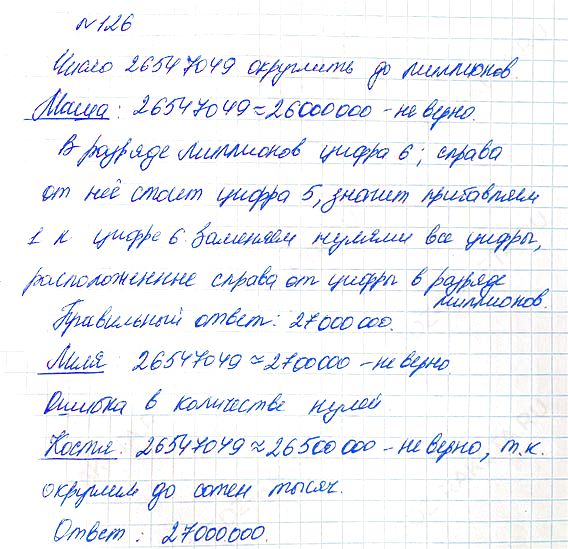 №126
Число 26547049 округлить до миллионов.
Маша: 26547049≈26000000 - не верно.
В разряде миллионов цифра 6; справа
от неё стоит цифра 5, значит прибавляем
1 к цифре 6. Заменяем нулями все цифры,
расположенные справа от цифры в разряде
миллионов.
Правильный ответ: 27000000.
Миля: 26547049≈2700000 - не верно.
Ошибка в количестве нулей
Костя: 26547049≈26500000 - не верно, т.к.
округлил до сотен тысяч.
Ответ: 27000000.